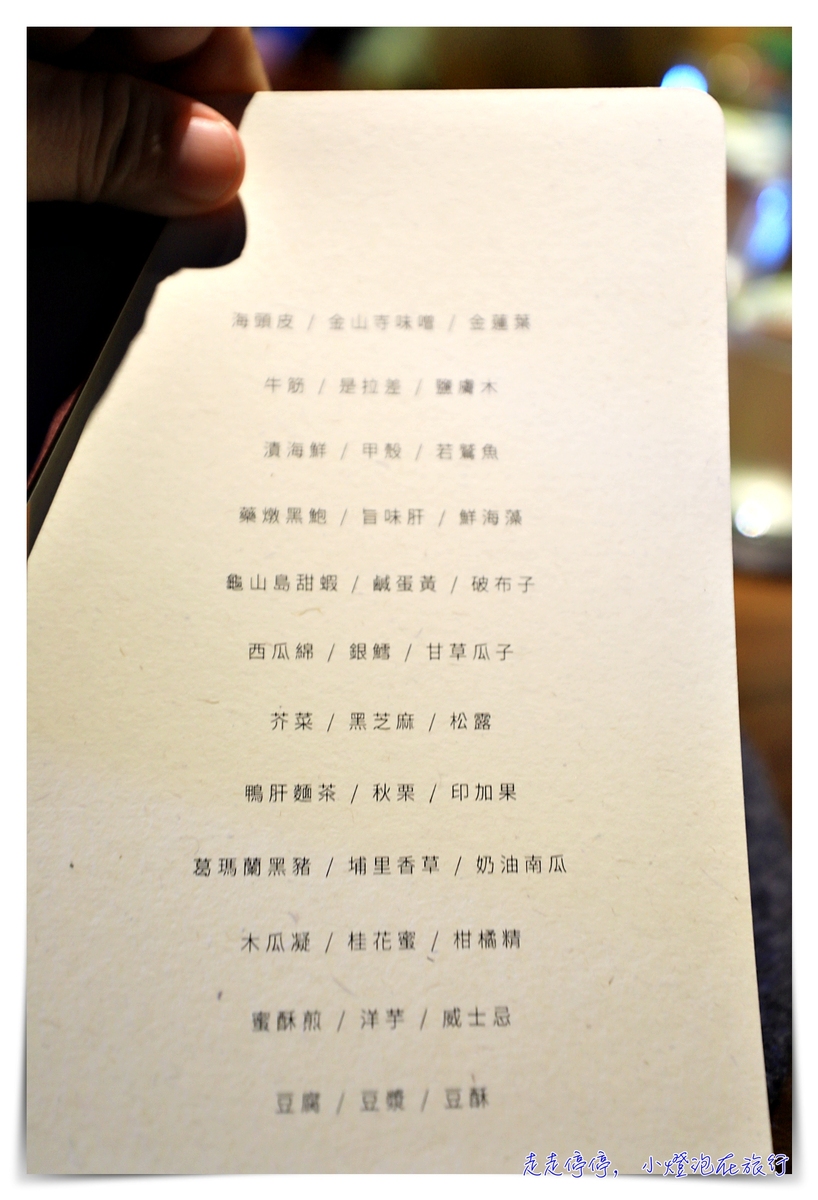 海頭皮 / 金山寺味噌 / 金蓮葉
牛筋 / 是拉差 / 鹽膚木
漬海鮮 / 甲殼 / 若鷺魚
藥燉黑鮑 / 旨味肝 / 鮮海藻
龜山島甜蝦 / 鹹蛋黃 / 破布子
西瓜綿 / 銀鱈 / 甘草瓜子
芥菜 / 黑芝麻 / 松露
鴨肝麵茶 / 秋栗 / 印加果
葛瑪蘭黑豬 / 埔里香草 / 奶油南瓜
木瓜凝 / 桂花蜜 / 柑橘精
蜜酥煎 / 洋芋 / 威士忌
豆腐 / 豆漿 / 豆酥
走走停停，小燈泡在旅行